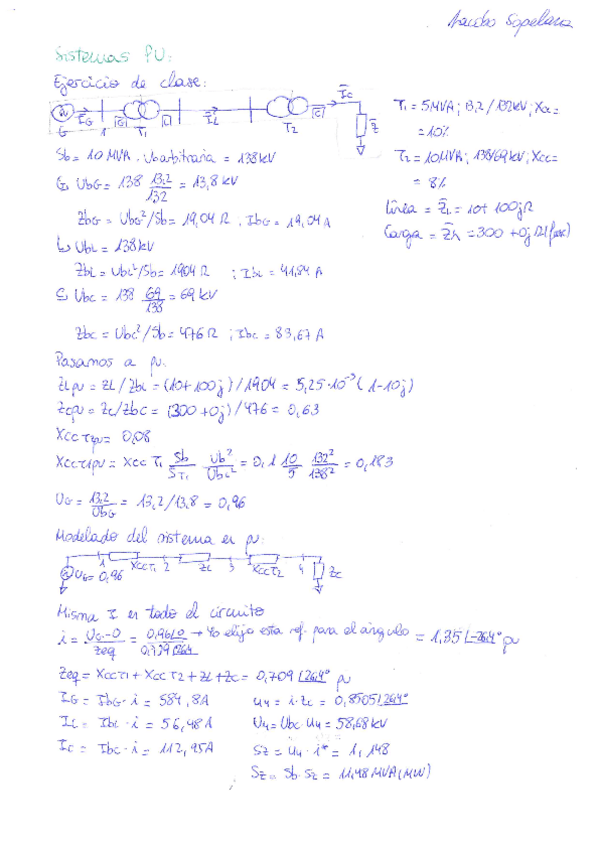 Sistemas PU:
Ejercicio de clase:
G 1 T1 T2 Z
ĪG ĪL ĪC
T1 = 5MVA; 13,2/132kV; Xcc =
= 10%
T2 = 10MVA; 138/69kV; Xcc =
= 8%
Línea = Z̄L = 10 + 100jΩ
Carga = Z̄C = 300 + 0jΩ
Sb = 10 MVA. Ub arbitraria = 138kV
G UbG = 138 13,2/132 = 13,8 kV
ZbG = UbG²/Sb = 19,04 Ω, IbG = 19,04A
L UbL = 138kV
ZbL = UbL²/Sb = 1904 Ω ; IbL = 41,84 A
C Ubc = 138 69/138 = 69 kV
Zbc = Ubc²/Sb = 476 Ω ; Ibc = 83,67 A
Pasamos a pu:
ZLpu = ZL/ZbL = (10+100j)/1904 = 5,25·10⁻³(1-10j)
Zcpu = Zc/Zbc = (300+0j)/476 = 0,63
XccT2pu = 0,08
XccT1pu = XccT1 Sb/ST1 Ub²/Ubc² = 0,1 10/5 132²/138² = 0,183
UG = 13,2/UbG = 13,2/13,8 = 0,96
Modelado del sistema en pu:
UG = 0,96 1 XccT1 2 ZL 3 XccT2 4 Zc
Misma I en todo el circuito
i = UG-0/Zeq = 0,96∠0/0,709∠26,4 → Yo elijo esta ref. para el ángulo = 1,35∠-26,4° pu
Zeq = XccT1 + XccT2 + ZL + Zc = 0,709∠26,4° pu
IG = IbG · i = 584,8A
IL = IbL · i = 56,48A
IC = Ibc · i = 112,95A
u4 = i · Zc = 0,8505∠26,4°
U4 = Ubc · u4 = 58,68kV
Sz = u4 · i* = 1,148
Sz = Sb · Sz = 11,48 MVA (MW)